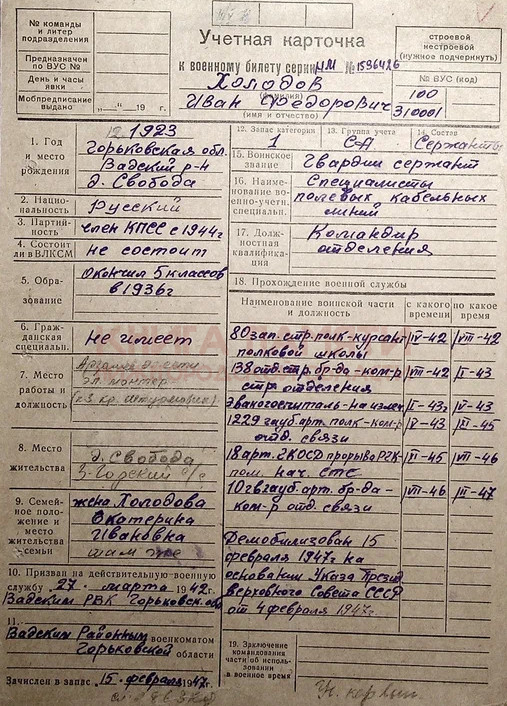 № команды и литер подразделения
Предназначен по ВУС №
День и часы явки
Мобпредписание выдано „ “ 19 г.
Учетная карточка
к военному билету серии НМ № 1536426
Холодов
Иван Федорович
(имя и отчество)
строевой
нестроевой
(нужное подчеркнуть)
№ ВУС (код)
100
310001
1. Год и место рождения
12 1923
Горьковская обл.
Вадский р-н
д. Свобода
2. Национальность
русский
3. Партийность
член КПСС с 1944г
4. Состоит ли в ВЛКСМ
не состоит
5. Образование
Окончил 5 классов
в 1936г
6. Гражданская специальн.
не имеет
7. Место работы и должность
эл. монтер
8. Место жительства
д. Свобода
с/с
9. Семейное положение и место жительства семьи
жена Холодова
Екатерина
Ивановна
там же
10. Призван на действительную военную
службу 27 марта 1942 г.
Вадским РВК Горьковск. обл
11. Вадским Районным военкоматом
Горьковской области
Зачислен в запас 15 февраля 1947г.
12. Запас категория
1
13. Группа учета
СА
14. Состав
Сержанты
15. Воинское звание
Гвардии сержант
16. Наименование военно-учетн. специальн.
Специалисты
полевых кабельных
линий
17. Должностная квалификация
Командир
отделения
18. Прохождение военной службы
Наименование воинской части и должность
с какого времени
по какое время
80 зап. стр. полк - курсант IV-42 VIII-42
полковой школы
138 отд. стр. бр-да - ком-р VIII-42 I-43
стр. отделения
Эвакогоспиталь - на излеч I-43г V-43
1229 гауб. арт. полк - ком-р V-43 XI-45
отд. связи
18 арт. ЗКОСД прорыва РГК- XI-45 VII-46
пом. нач. СТС
10 гв гауб. арт. бр-да - VII-46 II-47
ком-р отд. связи
Демобилизован 15
февраля 1947г на
основании Указа Презид
Верховного Совета СССР
от 4 февраля 1947г.
19. Заключение командования части об использовании в военное время